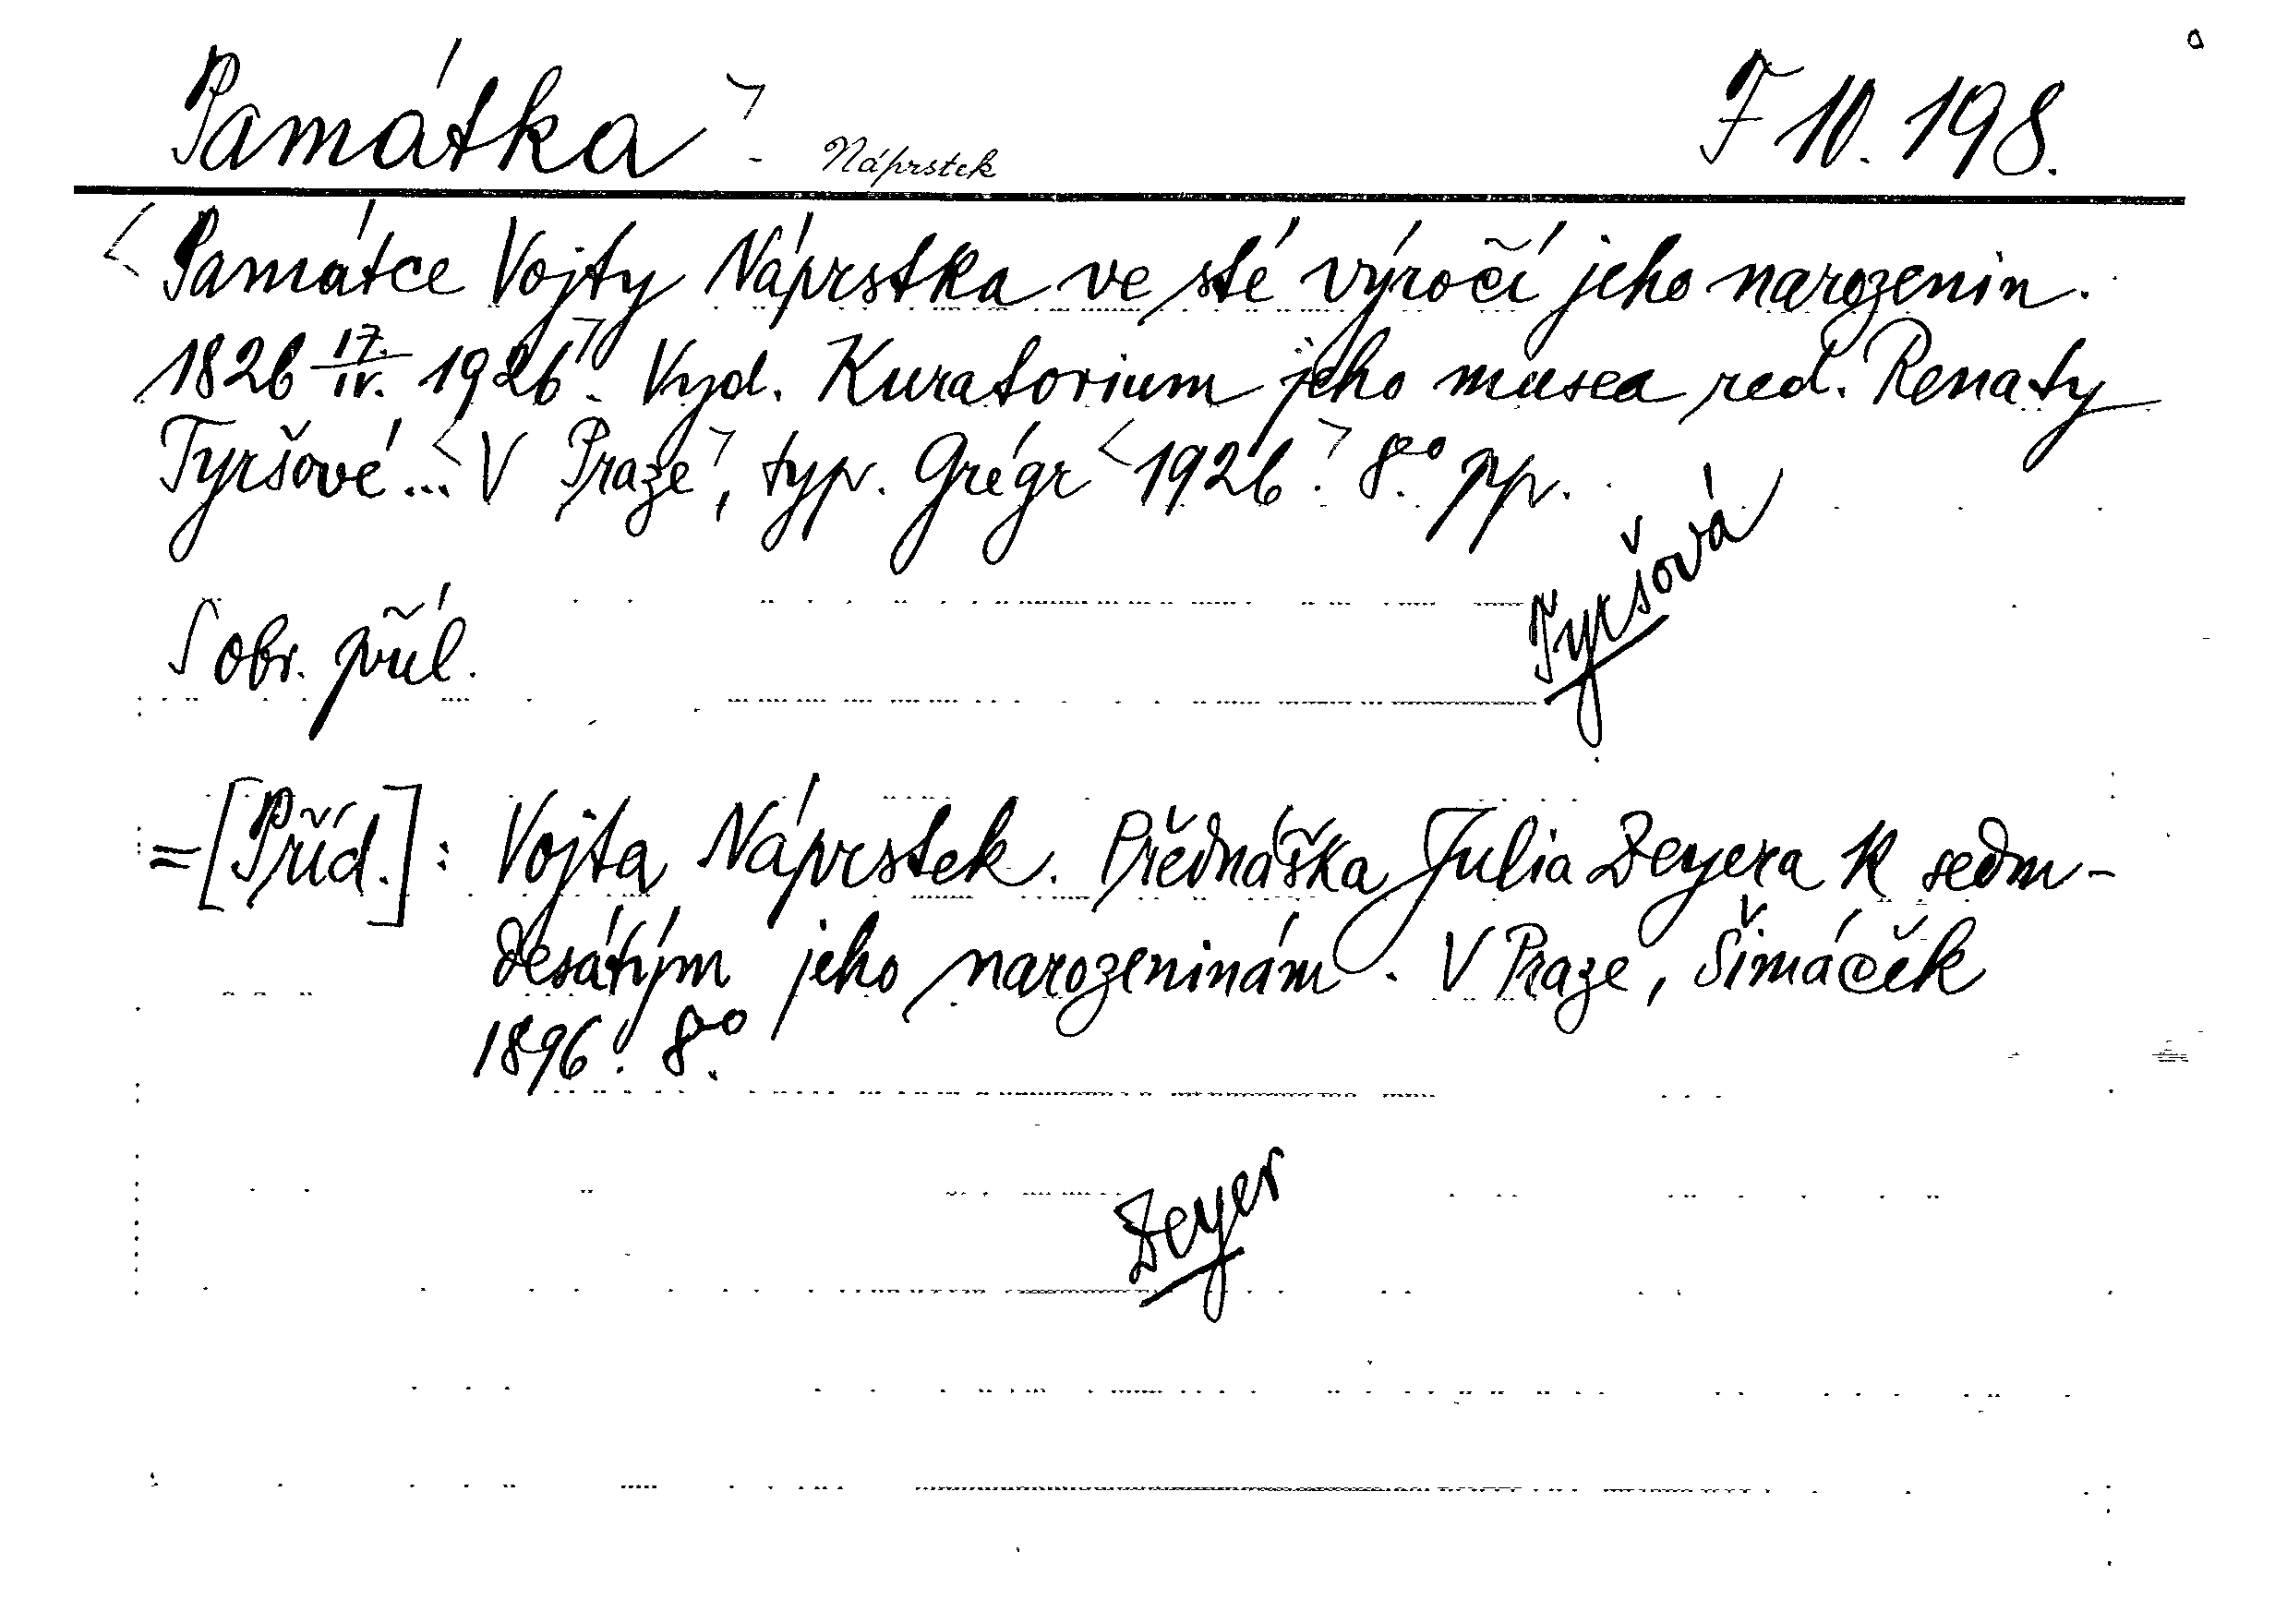 Památka Náprstek F 10.198.
Památce Vojty Náprstka ve sté výročí jeho narozenin.
1826 17./IV. 1926. Vyd. Kuratorium jeho musea red. Renaty
Tyršové... V Praze, typ. Grégr 1926. 8.° pp.
Tyršová
S obr. příl.
=[Příd.]: Vojta Náprstek. Přednáška Julia Zeyera k sedm-
desátým jeho narozeninám. V Praze, Šimáček
1896. 8.°
Zeyer